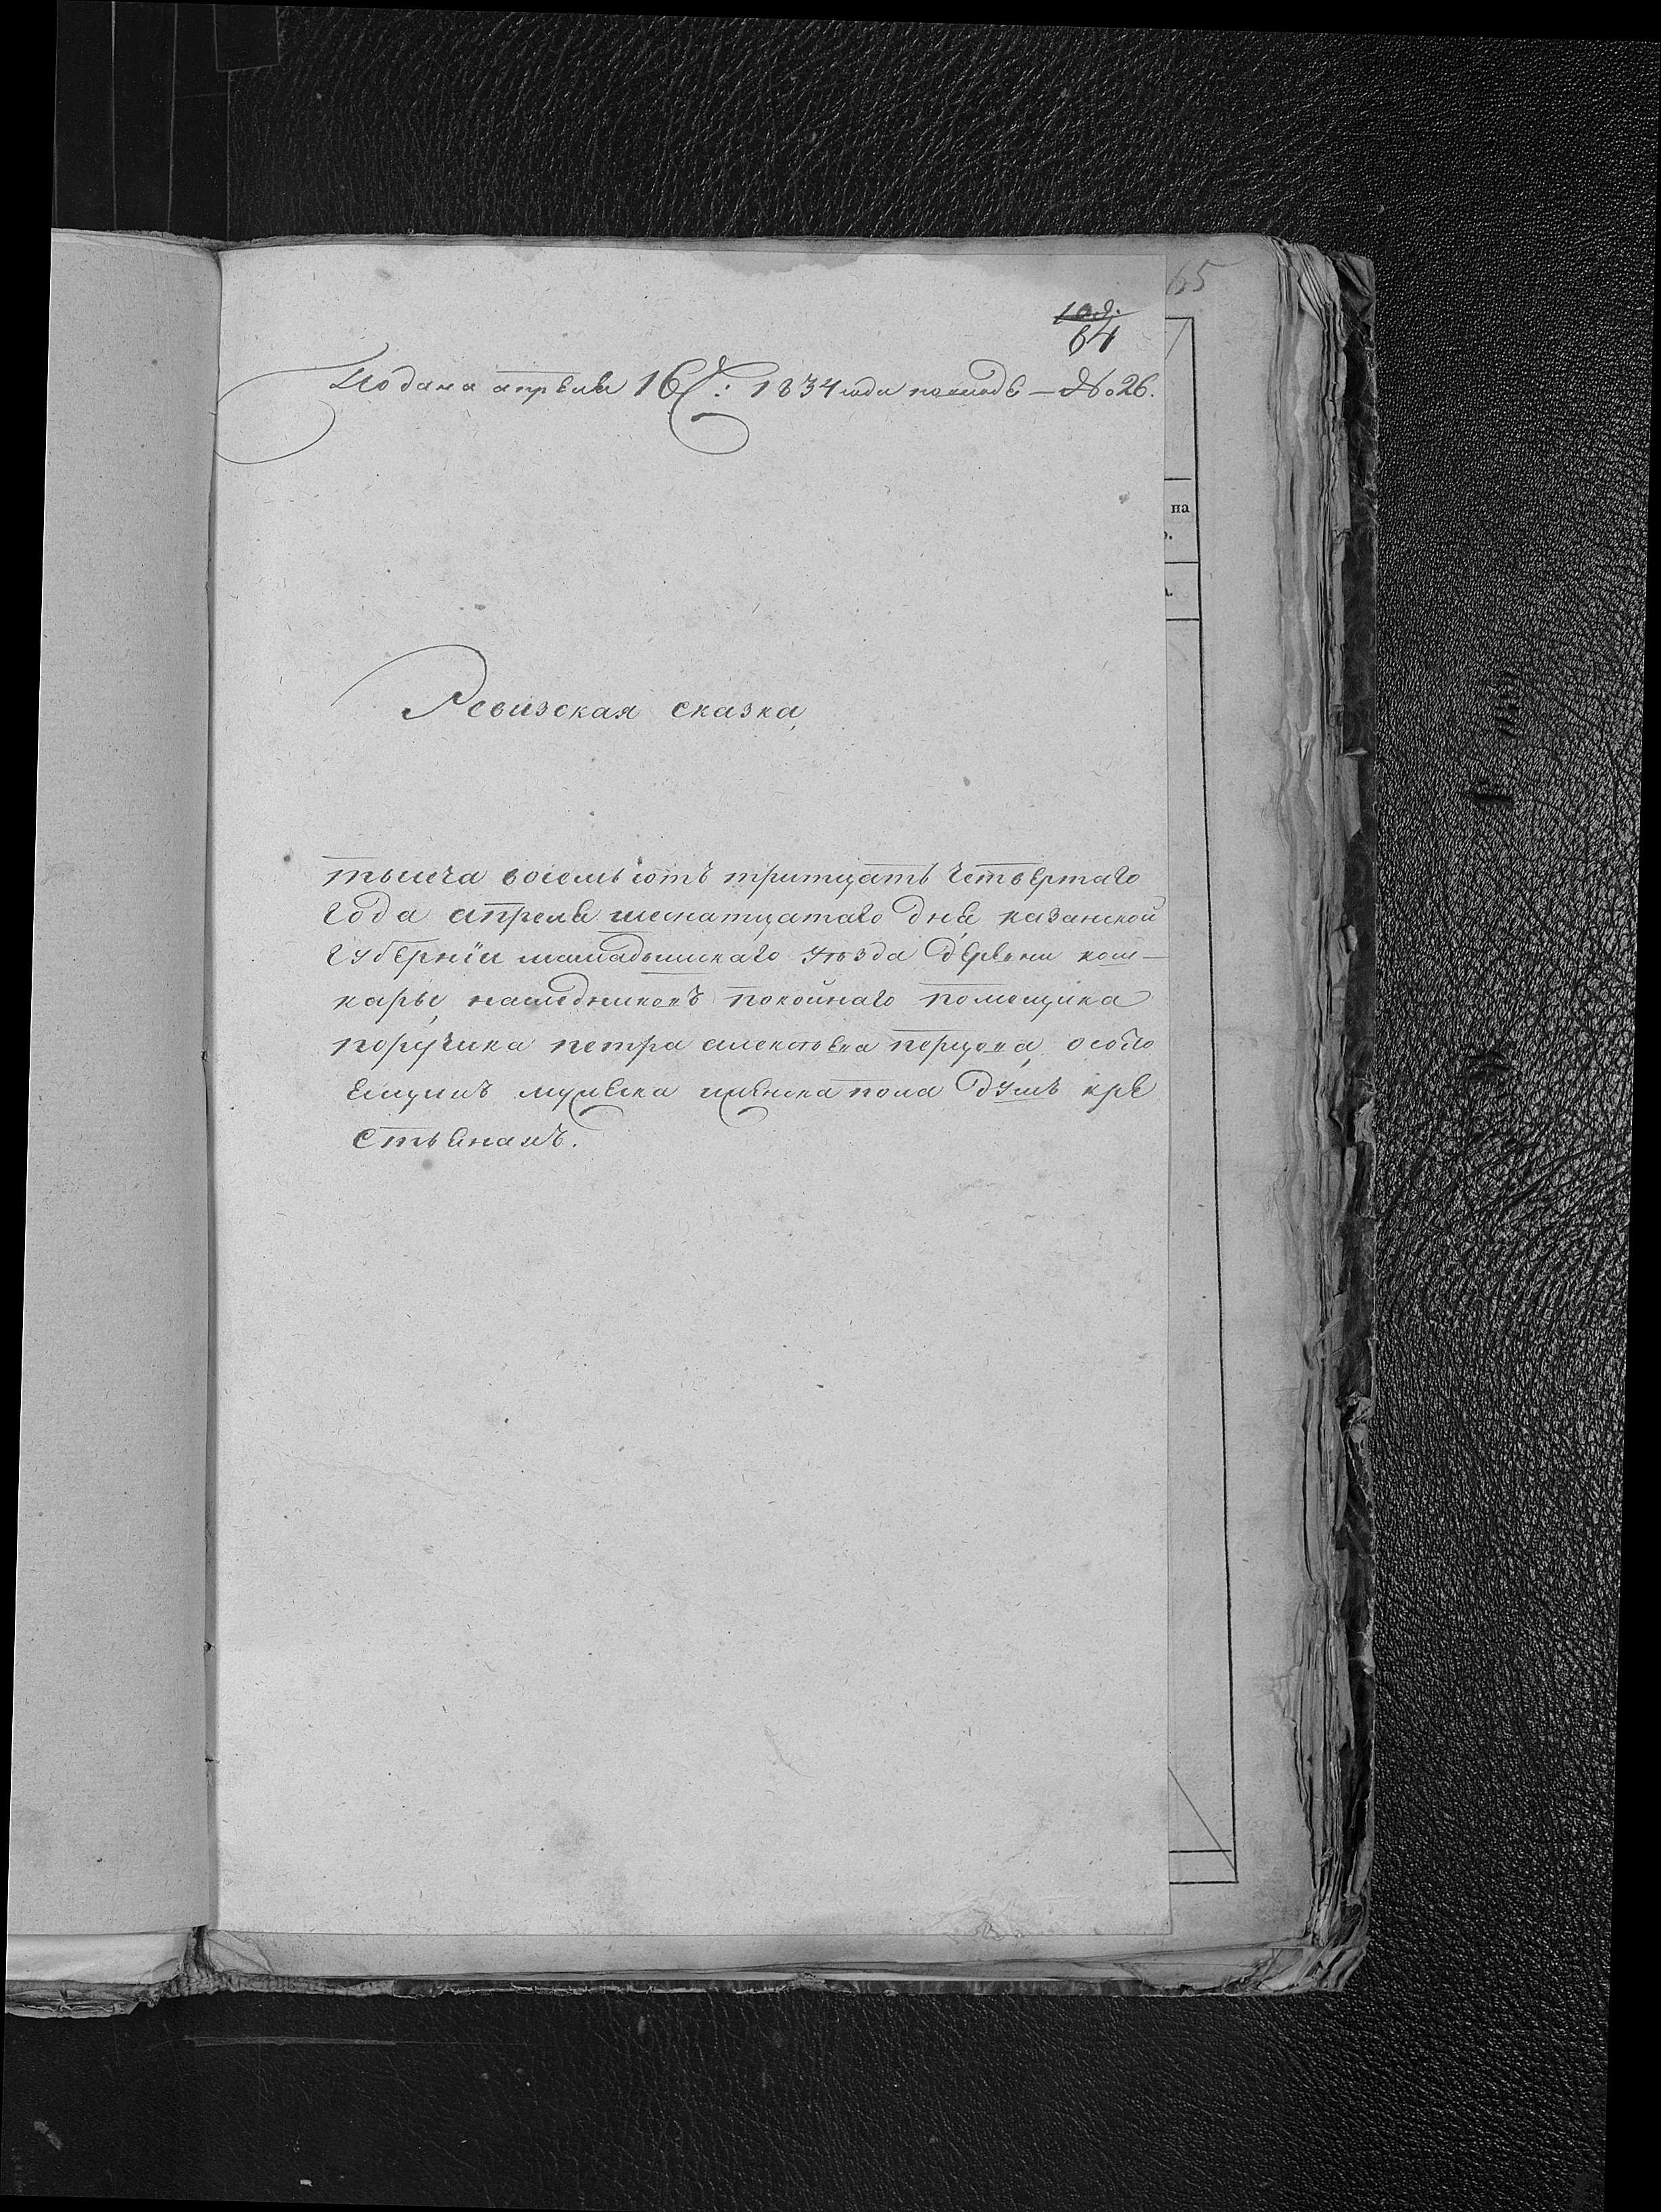 65
64
Подана апреля 16: 1834 года № 26.
Ревизская сказка,
тысеча восемьсотъ тритцать четвертаго
года апреля шеснатцатаго дня казанской
губерніи мамадышскаго уѣзда деревни кош-
на
кары, наследниковъ покойнаго помещика
поручика петра особо
муска женска пола душъ кре
стьянамъ.